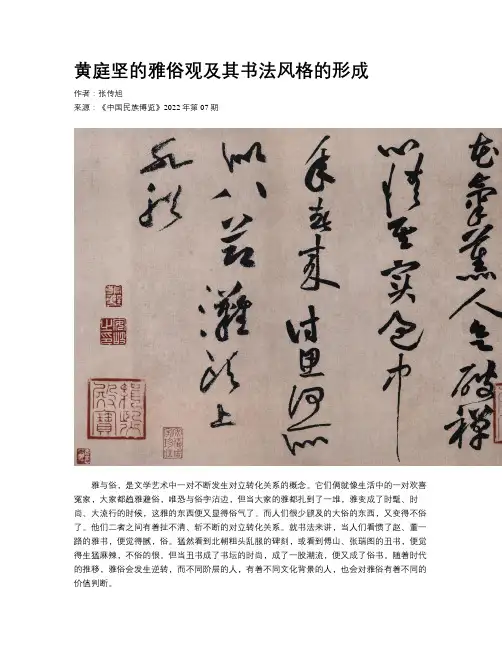 黄庭坚的雅俗观及其书法风格的形成
作者：张传旭
来源：《中国民族博览》2022年第07期
花氣薰人欲破禪
心情其實過中
年春來詩思何所
似八節灘頭上
水船
雅与俗，是文学艺术中一对不断发生对立转化关系的概念。它们俩就像生活中的一对欢喜
冤家，大家都趋雅避俗，唯恐与俗字沾边，但当大家的雅都扎到了一堆，雅变成了时髦、时
尚、大流行的时候，这雅的东西便又显得俗气了。而人们很少顾及的大俗的东西，又变得不俗
了。他们二者之间有着扯不清、斩不断的对立转化关系。就书法来讲，当人们看惯了赵、董一
路的雅书，便觉得腻，俗。猛然看到北朝粗头乱服的碑刻，或看到傅山、张瑞图的丑书，便觉
得生猛麻辣，不俗的很。但当丑书成了书坛的时尚，成了一股潮流，便又成了俗书。随着时代
的推移，雅俗会发生逆转，而不同阶层的人，有着不同文化背景的人，也会对雅俗有着不同的
价值判断。